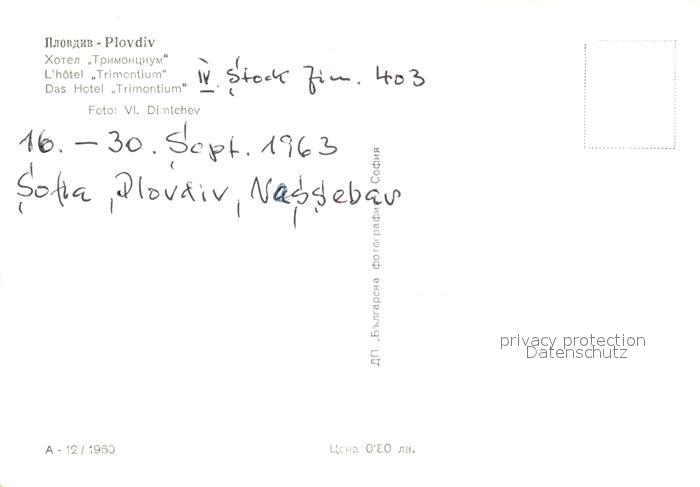 Пловдив - Plovdiv
Хотел „Тримонциум"
L'hôtel „Trimontium"
Das Hotel „Trimontium"
IV. Stock Zim. 403
Foto: Vl. Dimtchev
16. – 30. Sept. 1963
Sofia, Plovdiv, Nassebar
ДП „Българска фотография" София
privacy protection
Datenschutz
А - 12 / 1960
Цена 0·80 лв.